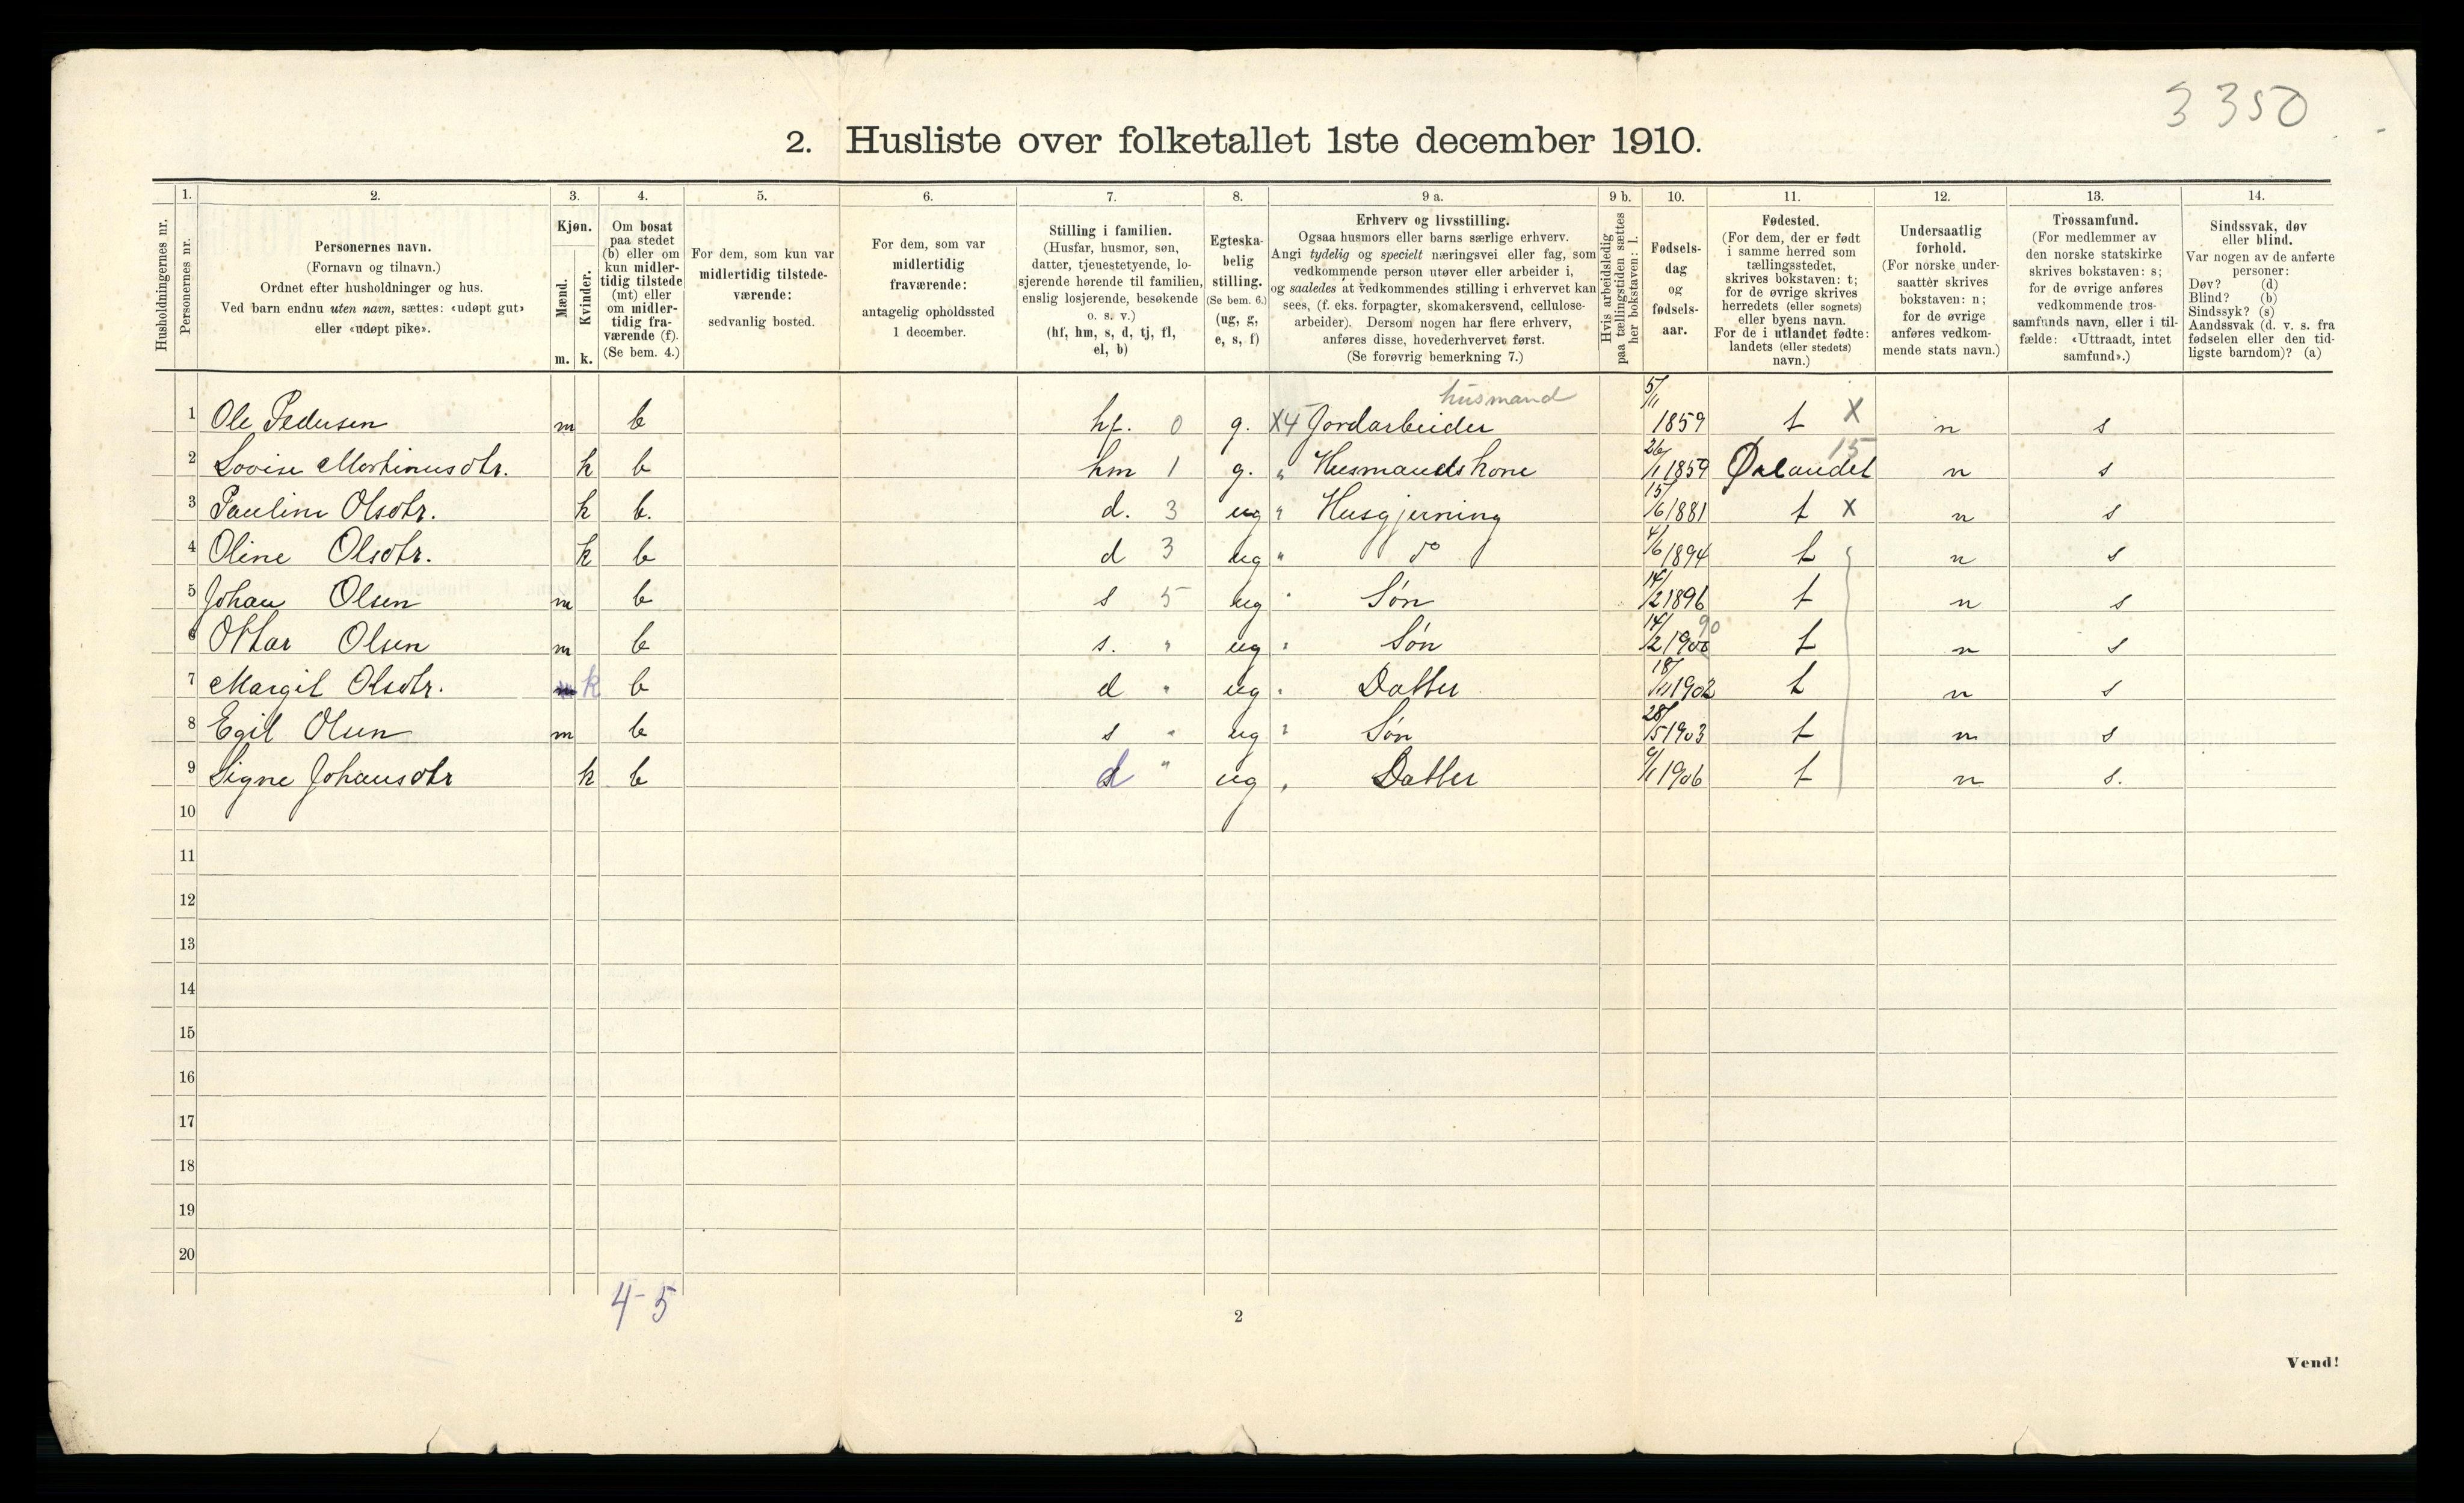 3350
2. Husliste over folketallet 1ste december 1910.
Husholdningernes nr.
1.
Personernes nr.
2.
Personernes navn.
(Fornavn og tilnavn.)
Ordnet efter husholdninger og hus.
Ved barn endnu uten navn, sættes: «udøpt gut»
eller «udøpt pike».
3.
Kjøn.
Mænd.
Kvinder.
m. k.
4.
Om bosat
paa stedet
(b) eller om
kun midler-
tidig tilstede
(mt) eller
om midler-
tidig fra-
værende (f).
(Se bem. 4.)
5.
For dem, som kun var
midlertidig tilstede-
værende:
sedvanlig bosted.
6.
For dem, som var
midlertidig
fraværende:
antagelig opholdssted
1 december.
7.
Stilling i familien.
(Husfar, husmor, søn,
datter, tjenestetyende, lo-
sjerende hørende til familien,
enslig losjerende, besøkende
o. s. v.)
(hf, hm, s, d, tj, fl,
el, b)
8.
Egteska-
belig
stilling.
(Se bem. 6.)
(ug, g,
e, s, f)
9 a.
Erhverv og livsstilling.
Ogsaa husmors eller barns særlige erhverv.
Angi tydelig og specielt næringsvei eller fag, som
vedkommende person utøver eller arbeider i,
og saaledes at vedkommendes stilling i erhvervet kan
sees, (f. eks. forpagter, skomakersvend, cellulose-
arbeider). Dersom nogen har flere erhverv,
anføres disse, hovederhvervet først.
(Se forøvrig bemerkning 7.)
9 b.
Hvis arbeidsledig
paa tællingstiden sættes
her bokstaven: l.
10.
Fødsels-
dag
og
fødsels-
aar.
11.
Fødested.
(For dem, der er født
i samme herred som
tællingsstedet,
skrives bokstaven: t;
for de øvrige skrives
herredets (eller sognets)
eller byens navn.
For de i utlandet fødte:
landets (eller stedets)
navn.)
12.
Undersaatlig
forhold.
(For norske under-
saatter skrives
bokstaven: n;
for de øvrige
anføres vedkom-
mende stats navn.)
13.
Trossamfund.
(For medlemmer av
den norske statskirke
skrives bokstaven: s;
for de øvrige anføres
vedkommende tros-
samfunds navn, eller i til-
fælde: «Uttraadt, intet
samfund».)
14.
Sindssvak, døv
eller blind.
Var nogen av de anførte
personer:
Døv? (d)
Blind? (b)
Sindssyk? (s)
Aandssvak (d. v. s. fra
fødselen eller den tid-
ligste barndom)? (a)
husmand
1 Ole Pedersen m b hf. 0 g. X4 Jordarbeider 5/11 1859 t X n s
2 Lovise Martinusdtr. k b hm 1 g. " Husmandskone 26/1 1859 Ørlandet 15 n s
3 Pauline Olsdtr. k b. d. 3 ug " Husgjerning 15/6 1881 t X n s
4 Oline Olsdtr. k b d 3 ug " do 4/6 1894 t n s
5 Johan Olsen m b s 5 ug " Søn 14/2 1896 t n s
6 Ottar Olsen m b s. " ug " Søn 14/2 1900 90 t n s
7 Margit Olsdtr. m k b d " ug " Datter 18/11 1902 t n s
8 Egil Olsen m b s " ug " Søn 28/5 1903 t n s
9 Signe Johansdtr k b d " ug " Datter 9/1 1906 t n s.
10
11
12
13
14
15
16
17
18
19
20
4-5
2
Vend!